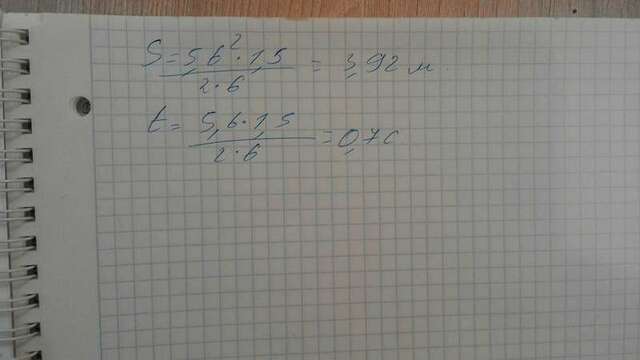 S = 5,6² · 1,5 / 2·6 = 3,92 м.
t = 5,6 · 1,5 / 2·6 = 0,7 с